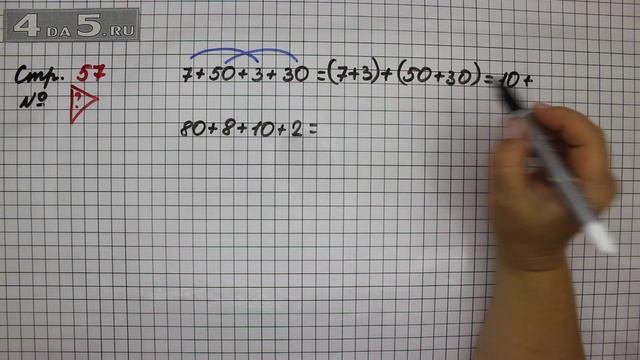 4 DA 5.RU
Стр. 57
№ ?
7+50+3+30=(7+3)+(50+30)=10+
80+8+10+2=